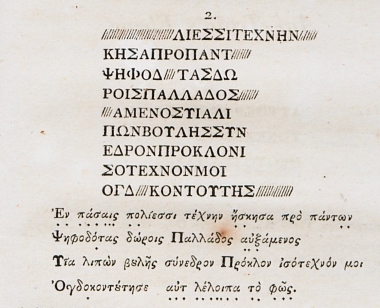 2.
/////////////ΛΙΕΣΣΙΤΕΧΝΗΝ/////
ΚΗΣΑΠΡΟΠΑΝΤ////
ΨΗΦΟΔ////ΤΑΣΔΩ
ΡΟΙΣΠΑΛΛΑΔΟΣ////
////ΑΜΕΝΟΣΥΙΑΛΙ
ΠΩΝΒΟΥΛΗΣΣΥΝ
ΕΔΡΟΝΠΡΟΚΛΟΝΙ
ΣΟΤΕΧΝΟΝΜΟΙ
ΟΓΔ////ΚΟΝΤΟΥΤΗΣ/////////
Ἐν πάσαις πολίεσσι τέχνην ἤσκησα πρὸ πάντων
Ψηφοδότας δώροις Παλλάδος αὐξάμενος
Υἷα λιπὼν βȣλῆς σύνεδρον Πρόκλον ἰσότεχνόν μοι
Ὀγδοκοντȣ́τησε αὐτ λέλοιπα τὸ φῶς.